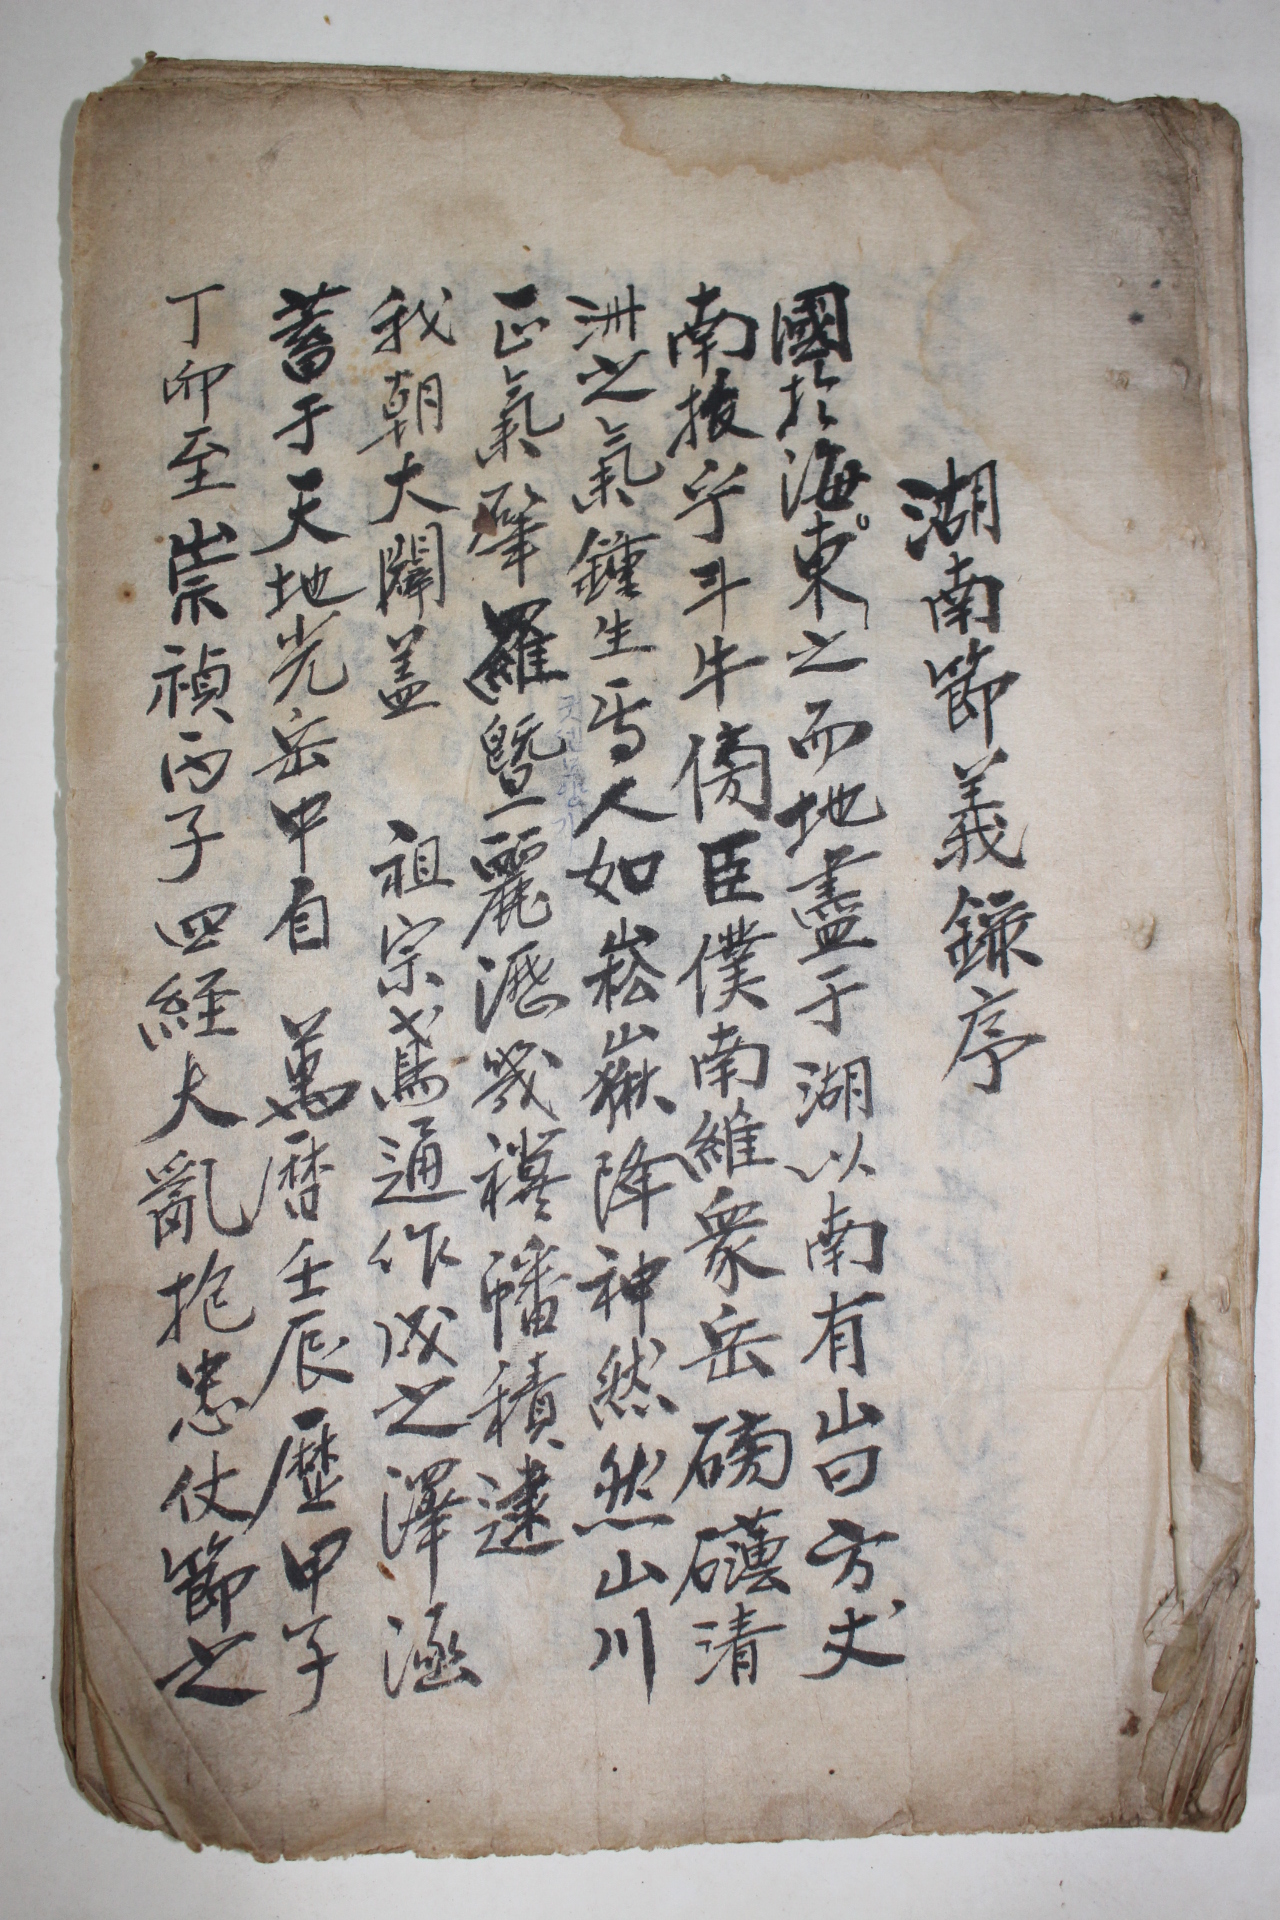 湖南節義錄序
國於海東之而地盡于湖以南有山曰方丈
南撥乎斗牛傍臣僕南維衆岳磅礴清
洲之氣鍾生焉人如崧嶽降神然然山川
正氣肇羅暨麗歷幾禩幡積逮
我朝大闡盖 祖宗鳶通作成之澤涵
蓄于天地光岳中自 萬曆壬辰歷甲子
丁卯至崇禎丙子四経大亂抱忠仗節之